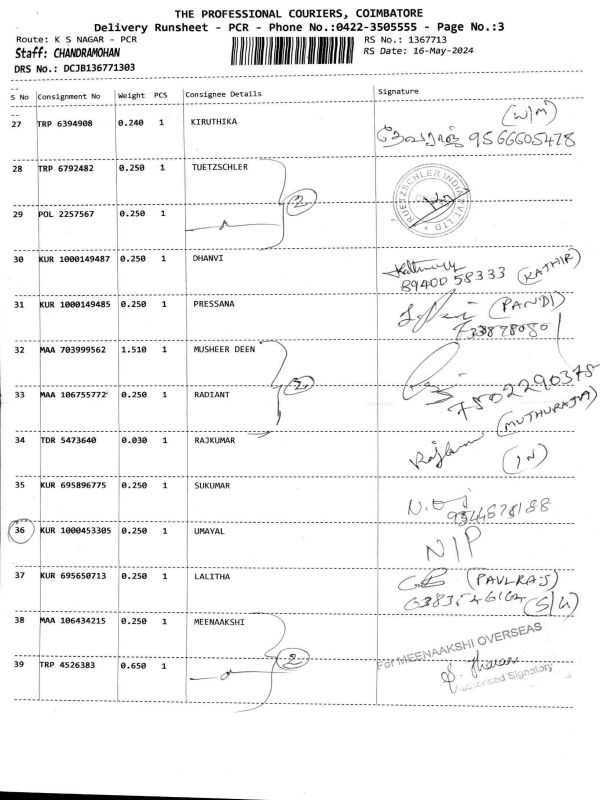 THE PROFESSIONAL COURIERS, COIMBATORE
Delivery Runsheet - PCR - Phone No.:0422-3505555 - Page No.:3
Route: K S NAGAR - PCR RS No.: 1367713
Staff: CHANDRAMOHAN RS Date: 16-May-2024
DRS No.: DCJB136771303
S No Consignment No Weight PCS Consignee Details Signature
(W/M)
27 TRP 6394908 0.240 1 KIRUTHIKA 9566605478
28 TRP 6792482 0.250 1 TUETZSCHLER
2
RUETZSCHLER INDIA PVT. LTD
29 POL 2257567 0.250 1
30 KUR 1000149487 0.250 1 DHANVI
89400 58333 (KATHIR)
31 KUR 1000149485 0.250 1 PRESSANA (PANDI)
32 MAA 703999562 1.510 1 MUSHEER DEEN
2
7502290375
33 MAA 106755772 0.250 1 RADIANT
(MUTHURAJA)
34 TDR 5473640 0.030 1 RAJKUMAR
35 KUR 695896775 0.250 1 SUKUMAR
36 KUR 1000453305 0.250 1 UMAYAL N/P
37 KUR 695650713 0.250 1 LALITHA (PAULRAJ)
38 MAA 106434215 0.250 1 MEENAAKSHI
2
For MEENAAKSHI OVERSEAS
39 TRP 4526383 0.650 1
Authorised Signatory